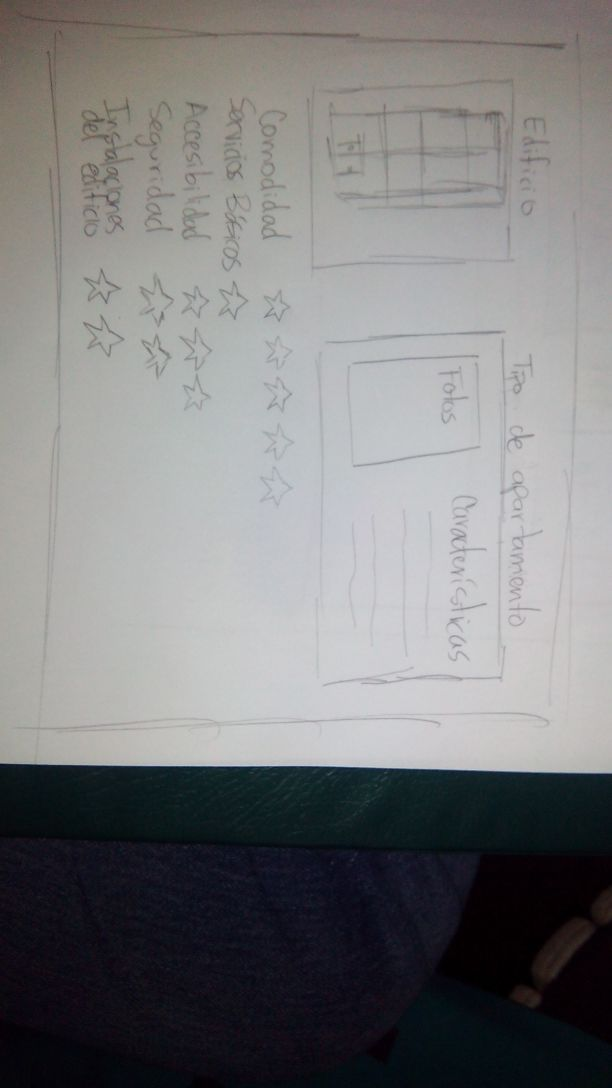 Edificio
Tipo de apartamiento
Fotos
Características
Comodidad
Servicios Básicos
Accesibilidad
Seguridad
Instalaciones
del edificio